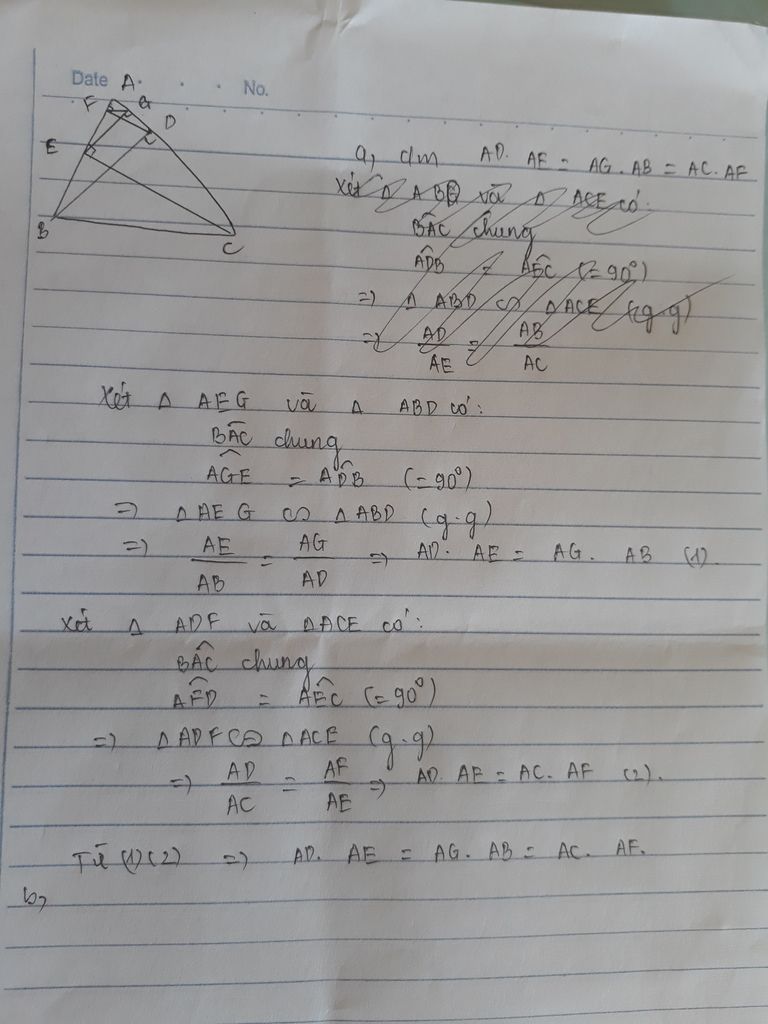 Date
No.
A
F
G
D
E
B
C
a, c/m AD. AE = AG. AB = AC. AF
Xét Δ ABD và Δ ACE có:
BÂC chung
ADB = AEC (= 90°)
=> Δ ABD ∽ Δ ACE (g.g)
=> AD/AE = AB/AC
Xét Δ AEG và Δ ABD có:
BÂC chung
AGE = ADB (= 90°)
=> Δ AEG ∽ Δ ABD (g.g)
=> AE/AB = AG/AD => AD. AE = AG. AB (1)
Xét Δ ADF và Δ ACE có:
BÂC chung
AFD = AEC (= 90°)
=> Δ ADF ∽ Δ ACE (g.g)
=> AD/AC = AF/AE => AD. AE = AC. AF (2).
Từ (1)(2) => AD. AE = AG. AB = AC. AF.
b,